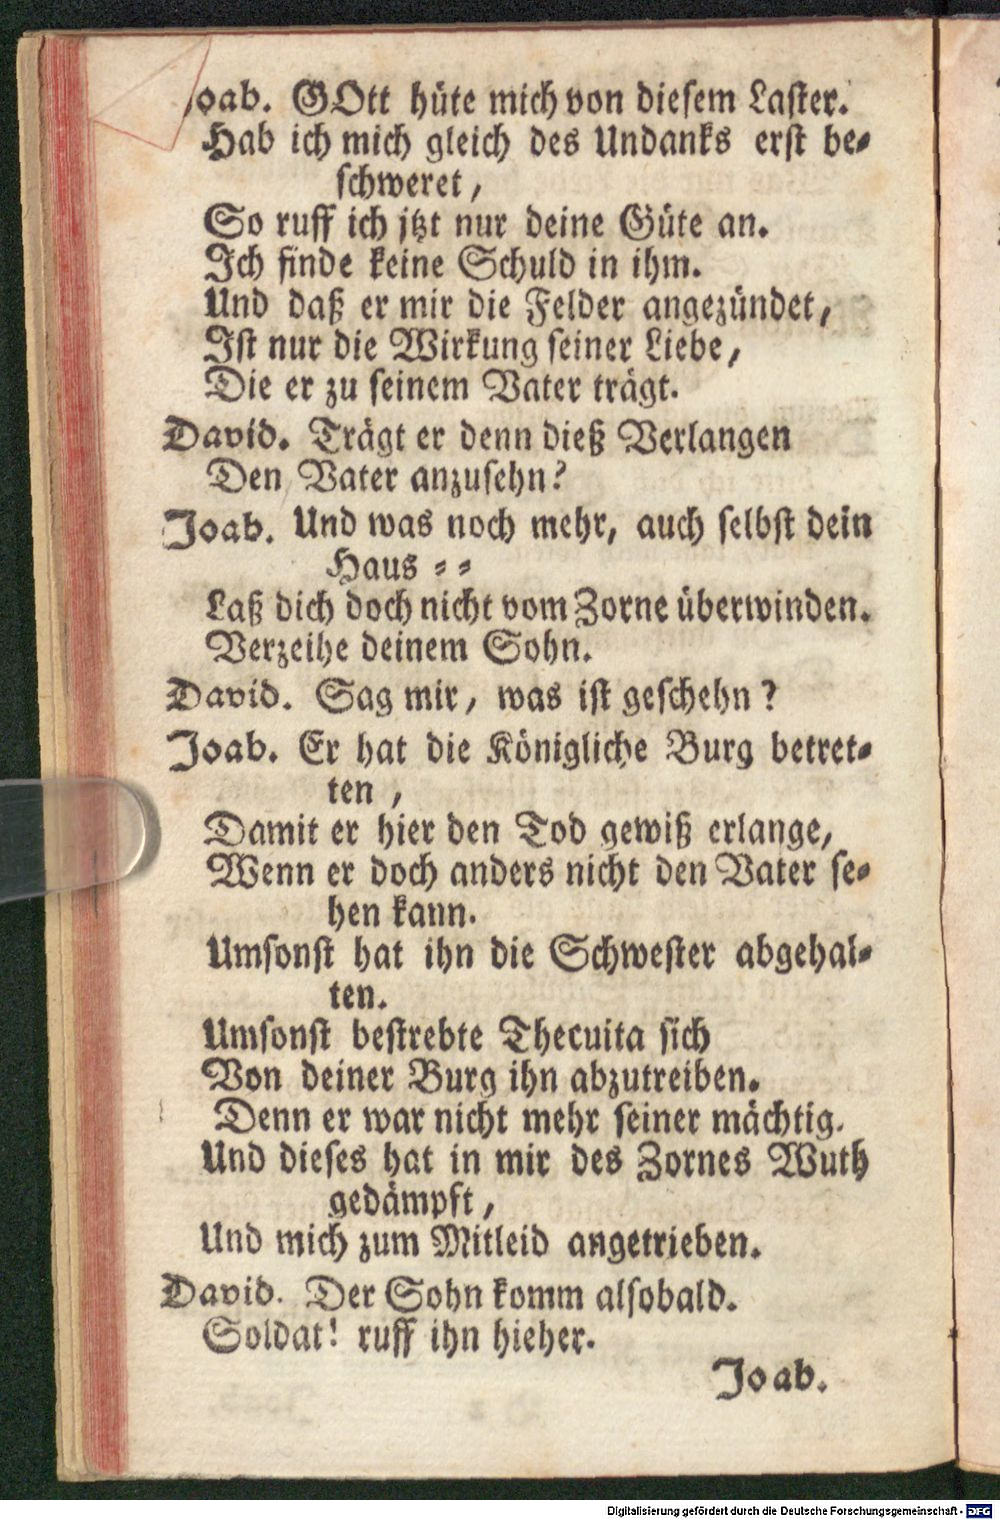 Joab. GOtt hüte mich von diesem Laster.
Hab ich mich gleich des Undanks erst be-
schweret,
So ruff ich jtzt nur deine Güte an.
Ich finde keine Schuld in ihm.
Und daß er mir die Felder angezündet,
Ist nur die Wirkung seiner Liebe,
Die er zu seinem Vater trägt.
David. Trägt er denn dieß Verlangen
Den Vater anzusehn?
Joab. Und was noch mehr, auch selbst dein
Haus - -
Laß dich doch nicht vom Zorne überwinden.
Verzeihe deinem Sohn.
David. Sag mir, was ist geschehn?
Joab. Er hat die Königliche Burg betret-
ten,
Damit er hier den Tod gewiß erlange,
Wenn er doch anders nicht den Vater se-
hen kann.
Umsonst hat ihn die Schwester abgehal-
ten.
Umsonst bestrebte Thecuita sich
Von deiner Burg ihn abzutreiben.
Denn er war nicht mehr seiner mächtig.
Und dieses hat in mir des Zornes Wuth
gedämpft,
Und mich zum Mitleid angetrieben.
David. Der Sohn komm alsobald.
Soldat! ruff ihn hieher.
Joab.
Digitalisierung gefördert durch die Deutsche Forschungsgemeinschaft - DFG